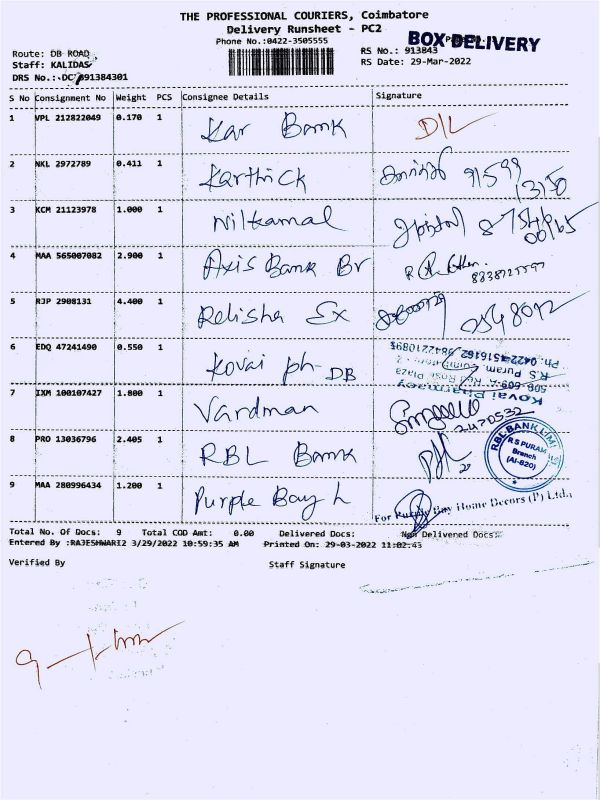 THE PROFESSIONAL COURIERS, Coimbatore
Delivery Runsheet - PC2
Phone No.:0422-3505555
BOX DELIVERY
Route: DB ROAD
Staff: KALIDAS
RS No.: 913843
RS Date: 29-Mar-2022
DRS No.: 891384301
S No Consignment No Weight PCS Consignee Details Signature
1 VPL 212822049 0.170 1 Kar Bank D/L
2 NKL 2972789 0.411 1 Karthick 91599
13150
3 KCM 21123978 1.000 1 Nilkamal
4 MAA 565007082 2.900 1 Axis Bank Br
5 RJP 2908131 4.400 1 Relisha Sx 2548092
6 EDQ 47241490 0.550 1 Kovai ph- DB
Kovai Pharmacy
R.S Puram,
Ph: 0422-4516162
7 IXM 100107427 1.800 1 Vardman 2470532
8 PRO 13036796 2.405 1 RBL Bank
RBL BANK LIMITED
R S PURAM
Branch
(AI-820)
9 MAA 280996434 1.200 1 Purple Bay h
For Purple Bay Home Decors (P) Ltd.,
Total No. Of Docs: 9 Total COD Amt: 0.00 Delivered Docs: Non Delivered Docs:
Entered By :RAJESHWARI2 3/29/2022 10:59:35 AM Printed On: 29-03-2022 11:02:43
Verified By Staff Signature